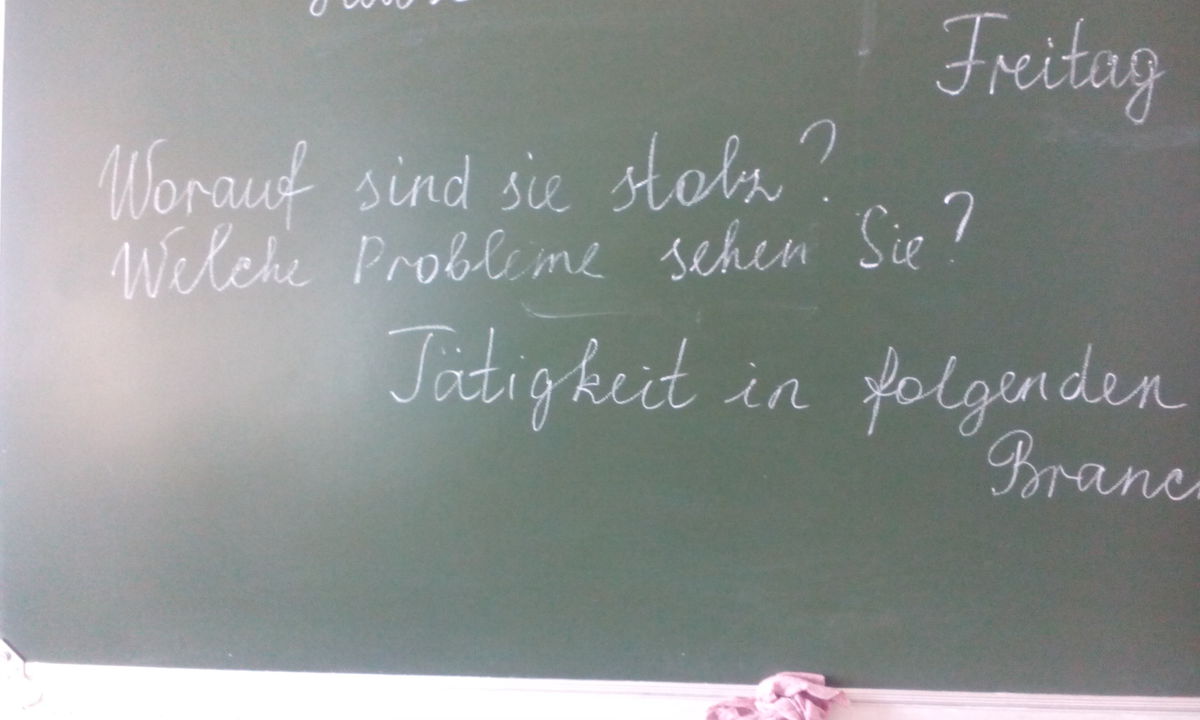 Freitag
Worauf sind sie stolz?
Welche Probleme sehen Sie?
Tätigkeit in folgenden